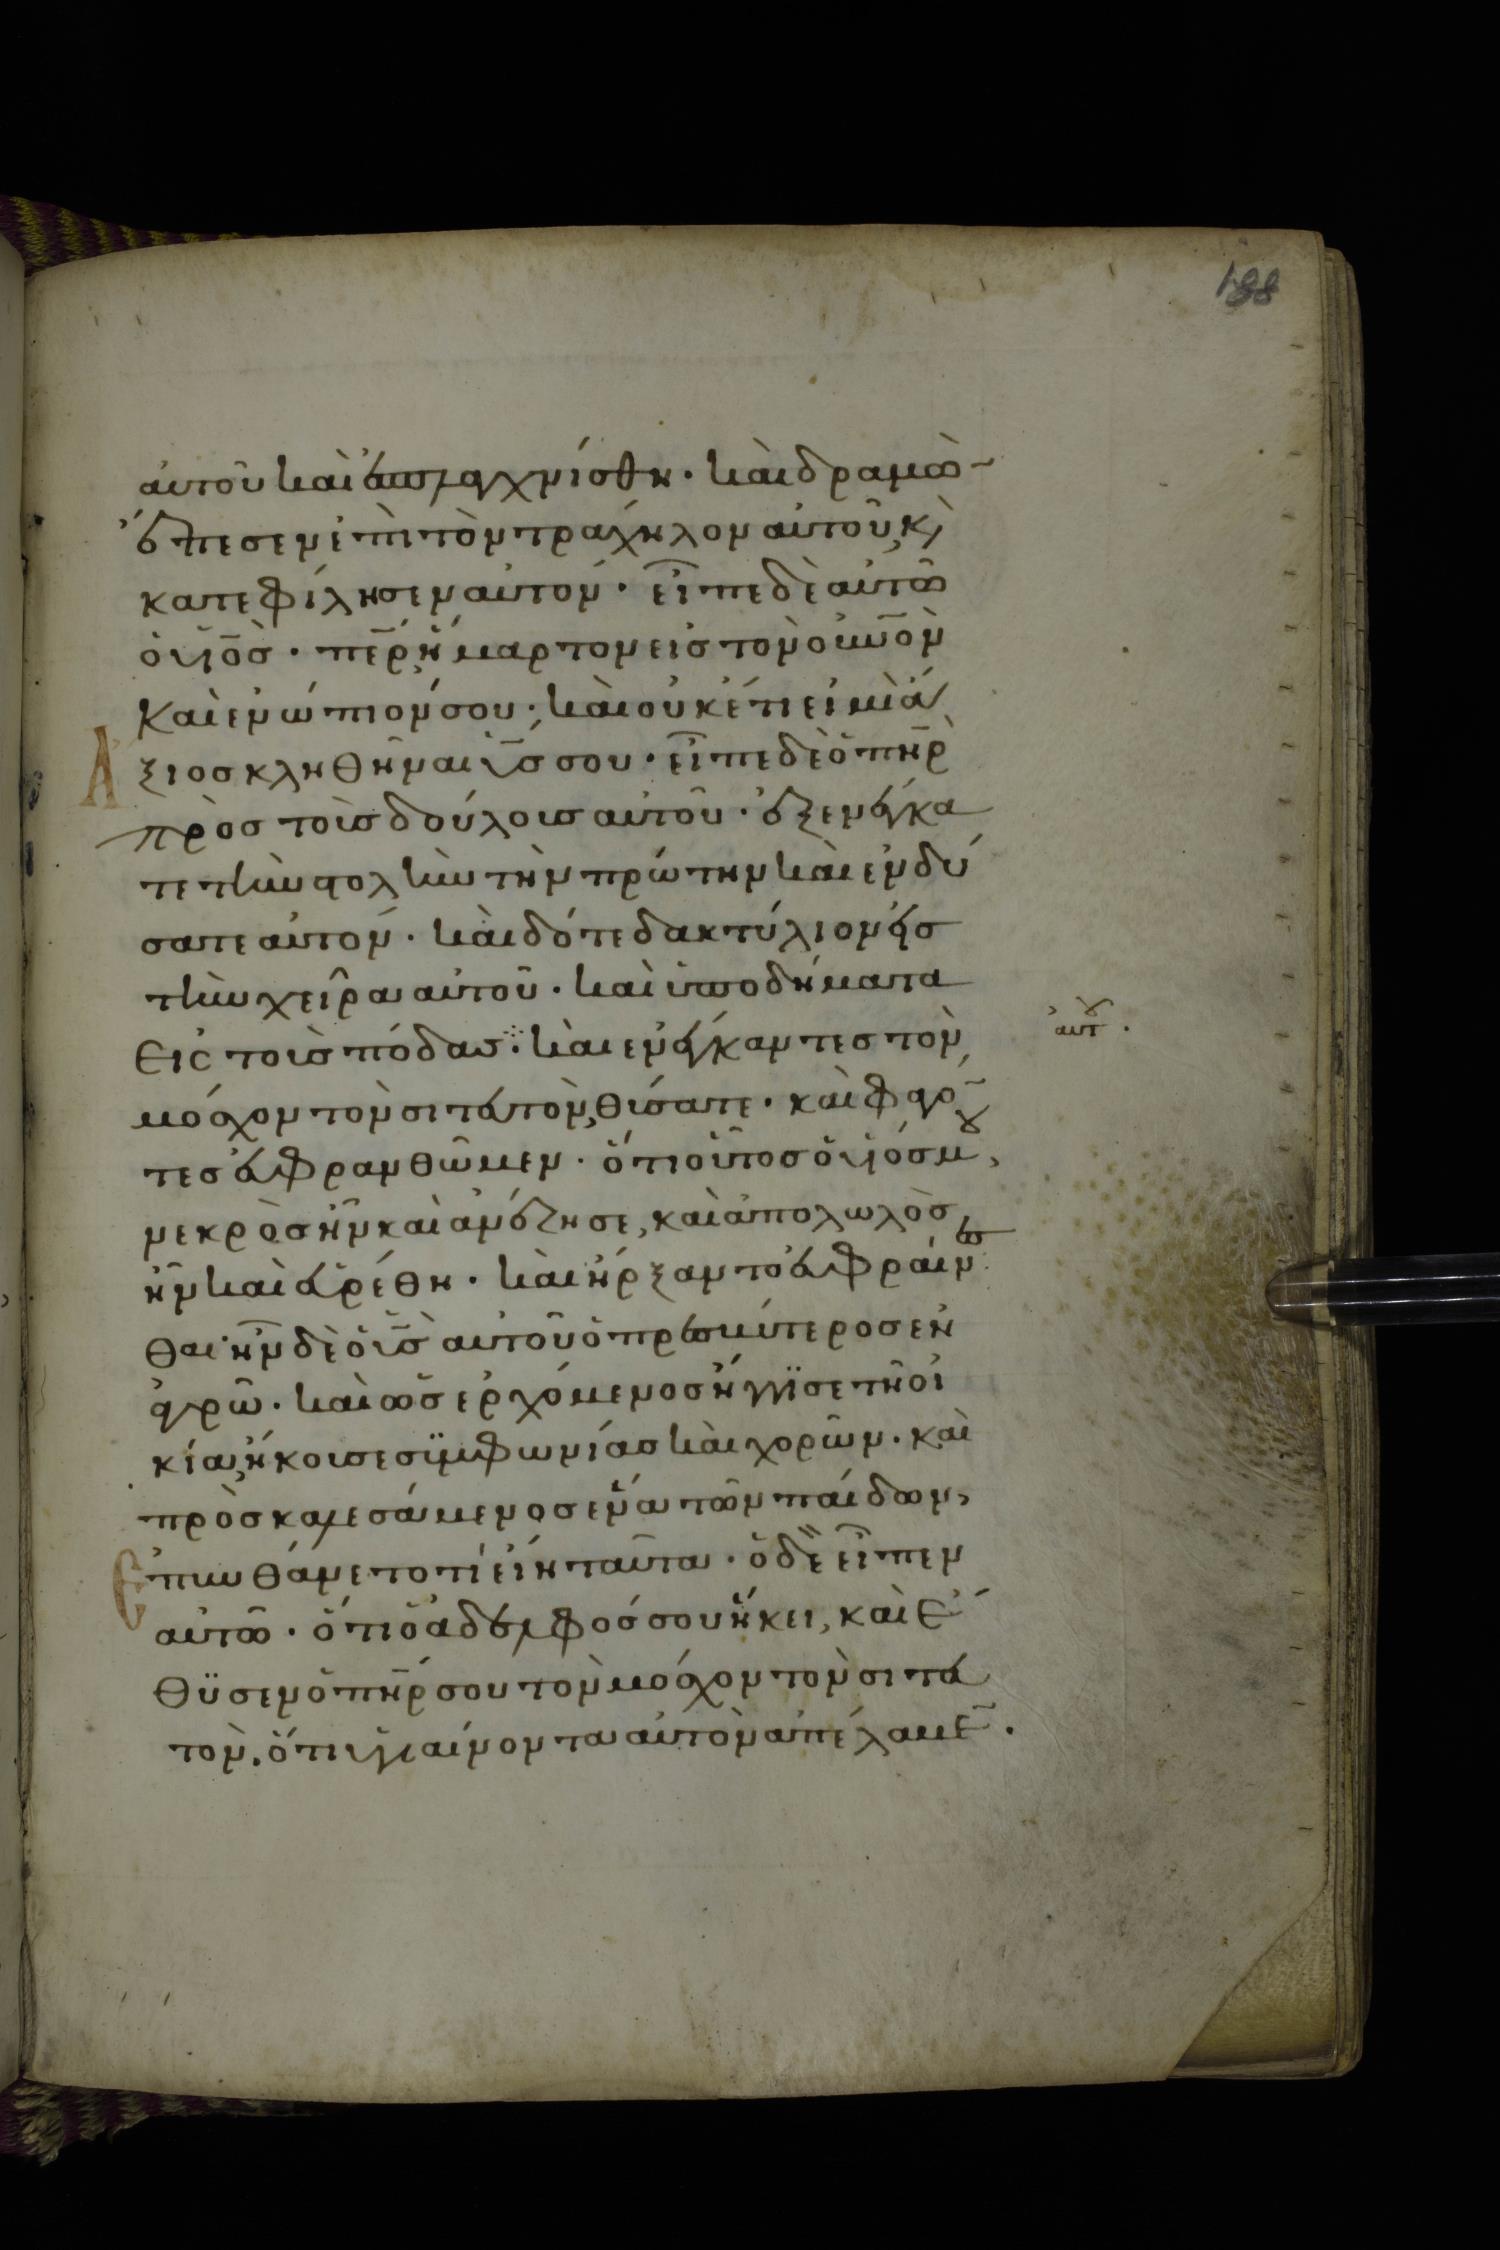 188
αὐτοῦ καὶ ἐσπλαγχνίσθη · καὶ δραμὼ̅
ἔπεσεν ἐπὶ τὸν τράχηλον αὐτοῦ, κ̀
κατεφίλησεν αὐτόν · εἶπε δὲ αὐτῶ
ὁ υἱὸς · πε̅ρ ἥμαρτον εἰς τὸν οὐν̅ὸν
Καὶ ἐνώπιόν σου · καὶ οὐκέτι εἰμὶ ἄ
ξιος κληθῆναι υἱ̅ς σου · εἶπε δὲ ὁ πη̅ρ
πρὸς τοὺς δούλους αὐτοῦ · ἐξενέγκα
τε τὴν στολὴν τὴν πρώτην καὶ ἐνδύ
σατε αὐτόν · καὶ δότε δακτύλιον εἰς
τὴν χεῖρα αὐτοῦ · καὶ ὑποδήματα
Εἰς τοὺς πόδας ⁘ καὶ ἐνέγκαντες τὸν
αὐτοῦ ·
μόσχον τὸν σιτευτὸν, θύσατε · καὶ φαγό̅
τες εὐφρανθῶμεν · ὅτι οὗτος ὁ υἱός μου,
νεκρὸς ἦν καὶ ἀνέζησε, καὶ ἀπολωλὸς
ἦν καὶ εὑρέθη · καὶ ἤρξαντο εὐφραίνεσ
θαι · ἦν δὲ ὁ υἱ̅ς αὐτοῦ ὁ πρεσβύτερος ἐν
ἀγρῶ · καὶ ὡς ἐρχόμενος ἤγγϊσε τῆ οἰ
κία, ἤκουσε συμφωνίας καὶ χορῶν · καὶ
πρὸσκαλεσάμενος ἕνα τῶν παίδων,
Ἐπυνθάνετο τί εἴη ταῦτα · ὁ δὲ εἶπεν
αὐτῶ · ὅτι ὁ ἀδελφός σου ἥκει, καὶ ἔ
θϋσεν ὁ πη̅ρ σου τὸν μόσχον τὸν σιτευ
τὸν, ὅτι ὑγιαίνοντα αὐτὸν ἀπέλαβε̅ ·